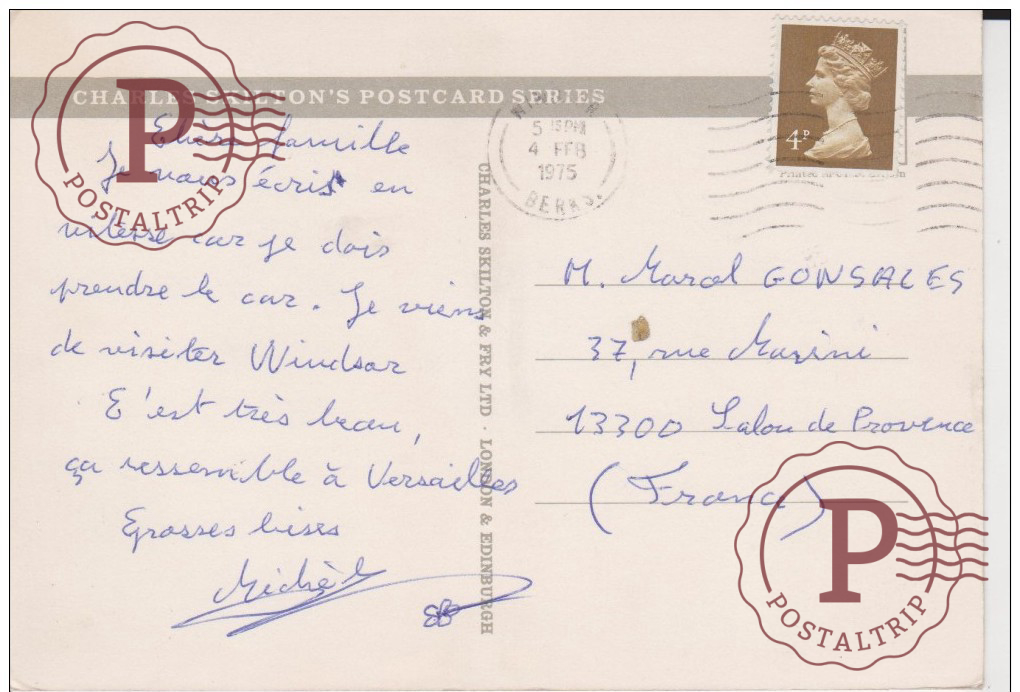 CHARLES SKILTON'S POSTCARD SERIES
Chère famille
Je vous écris en
vitesse car je dois
prendre le car. Je viens
de visiter Windsor
C'est très beau,
ça ressemble à Versailles
Grosses bises
Michèle
CHARLES SKILTON & FRY LTD · LONDON & EDINBURGH
5 15PM
4 FEB
1975
BERKS.
4P
M. Marcel GONSALES
37, rue Mazini
13300 Salon de Provence
(France)
P
POSTALTRIP
P
POSTALTRIP